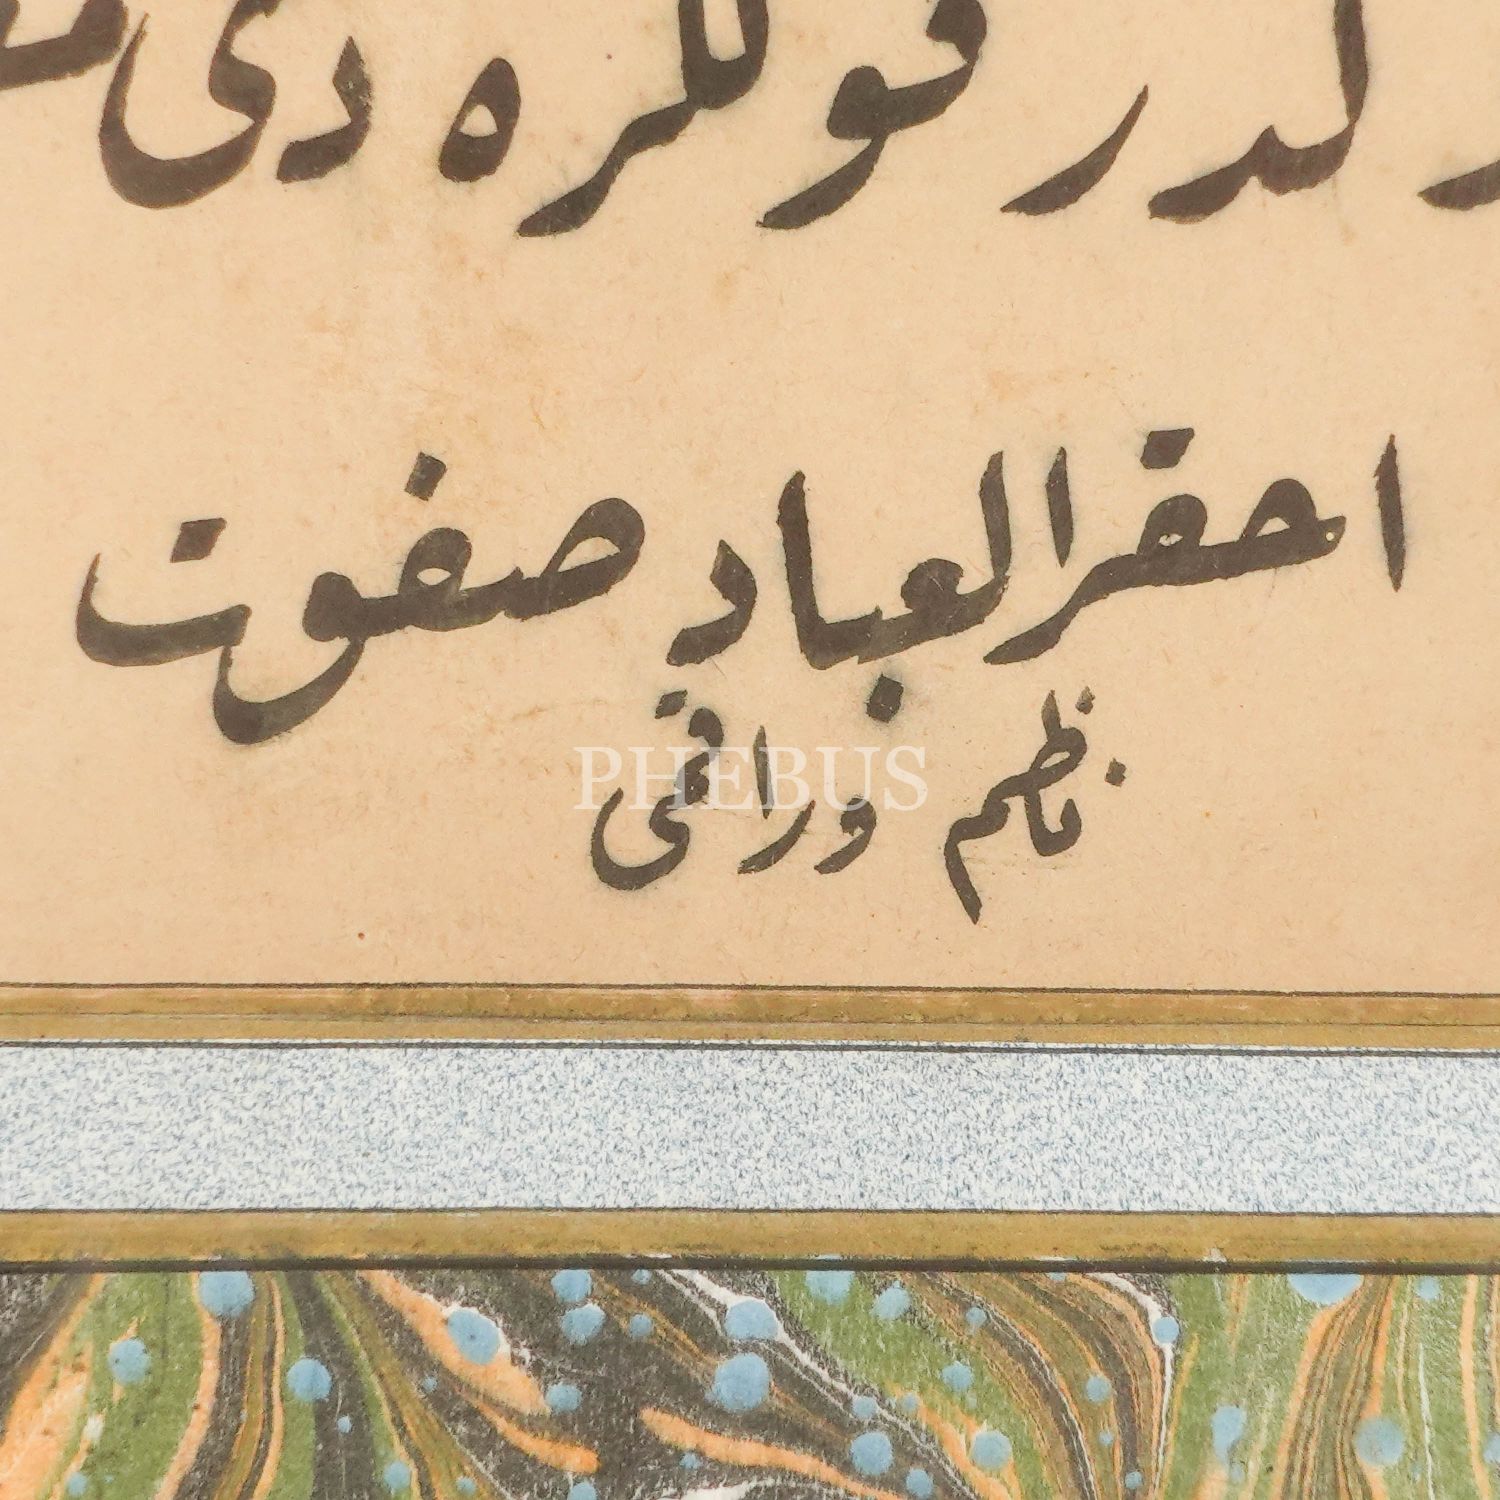 لدر قوللره دى
احقر العباد صفوت
ناظم وراقمى
PHEBUS